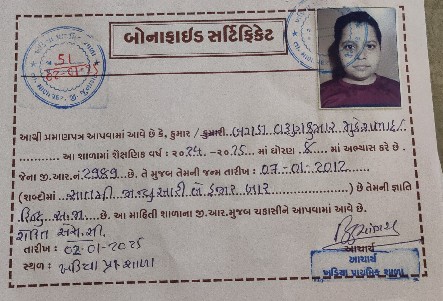 બોનાફાઇડ સર્ટિફિકેટ
51
02-01-25
આથી પ્રમાણપત્ર આપવામાં આવે છે કે, કુમાર / કુમારી
આ શાળામાં શૈક્ષણિક વર્ષ : ૨૦24 -૨૦25 માં ધોરણ 8 માં અભ્યાસ કરે છે.
જેના જી.આર.નં. 2989 છે. તે મુજબ તેમની જન્મ તારીખ : 07-01-2012
(શબ્દોમાં સાતમી જાન્યુઆરી બે હજાર બાર ) છે તેમની જ્ઞાતિ
હિન્દુ છે. આ માહિતી શાળાના જી.આર.મુજબ ચકાસીને આપવામાં આવે છે.
તારીખ : 02-01-2025
સ્થળ : ખડિયા પ્રા. શાળા
આચાર્ય
આચાર્ય
ખડિયા પ્રાથમિક શાળા